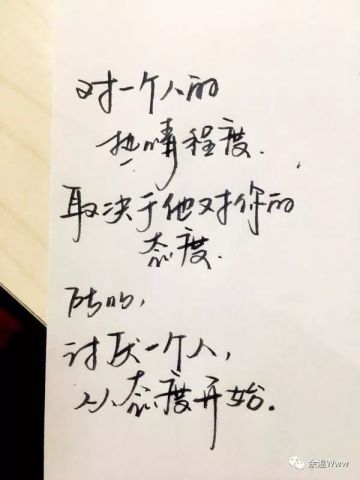 对一个人的
热情程度.
取决于他对你的
态度.
讨厌一个人,
从态度开始.
余温Www